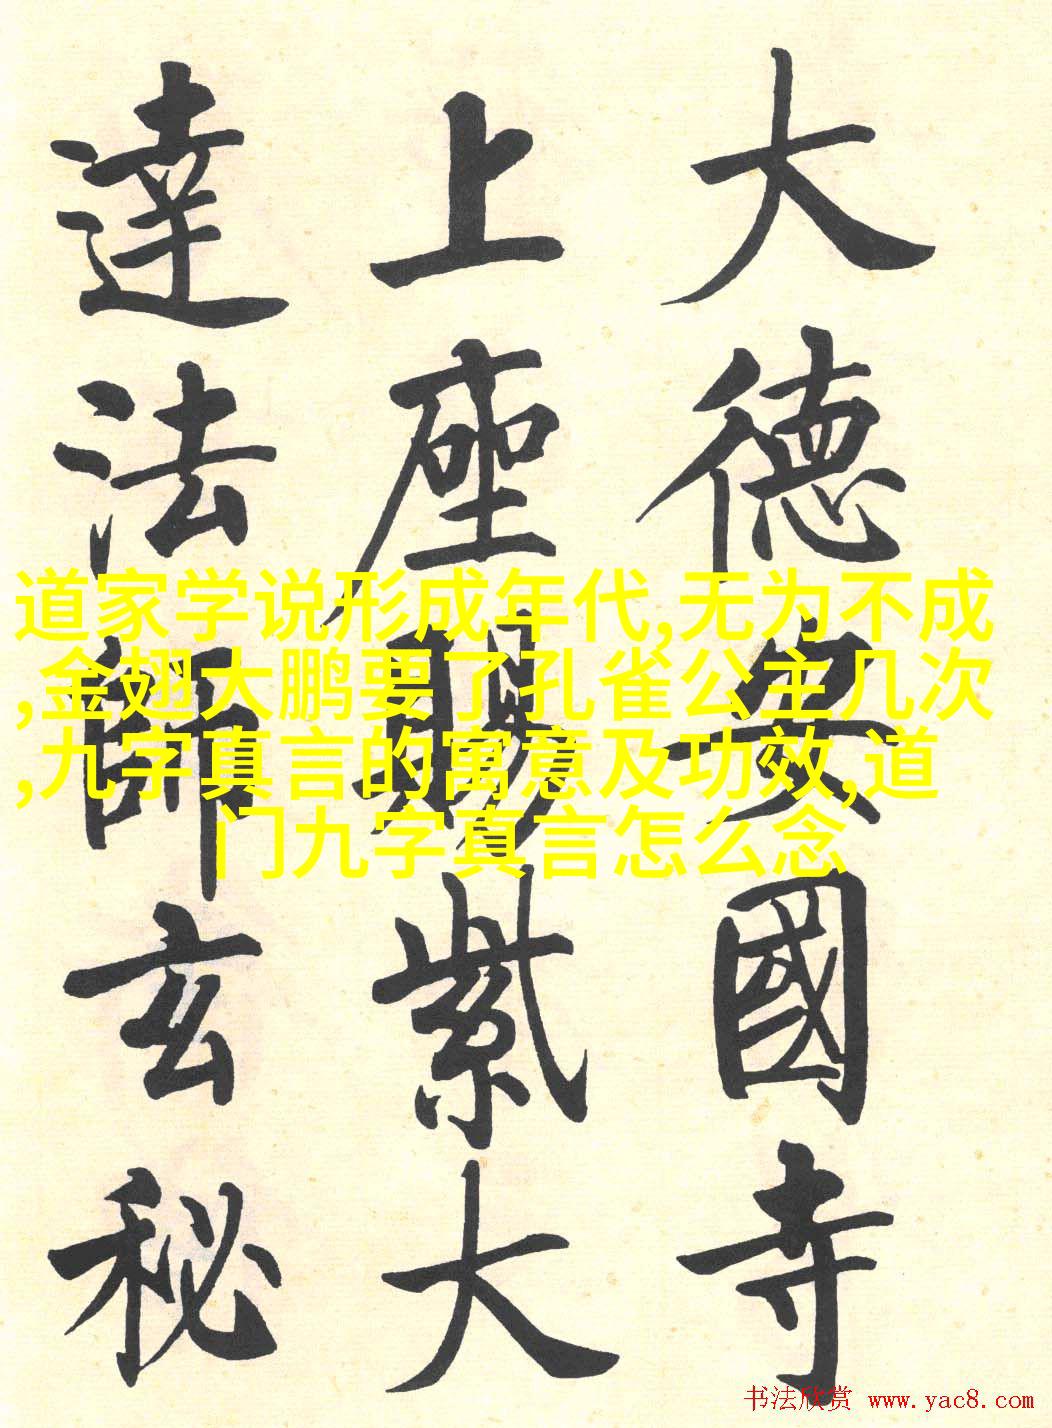 大德安國寺
上座賜紫大
達法師玄秘
道家学说形成年代,无为不成
,金翅大鹏要了孔雀公主几次
,九字真言的寓意及功效,道
门九字真言怎么念
书法欣赏 www.yac8.com